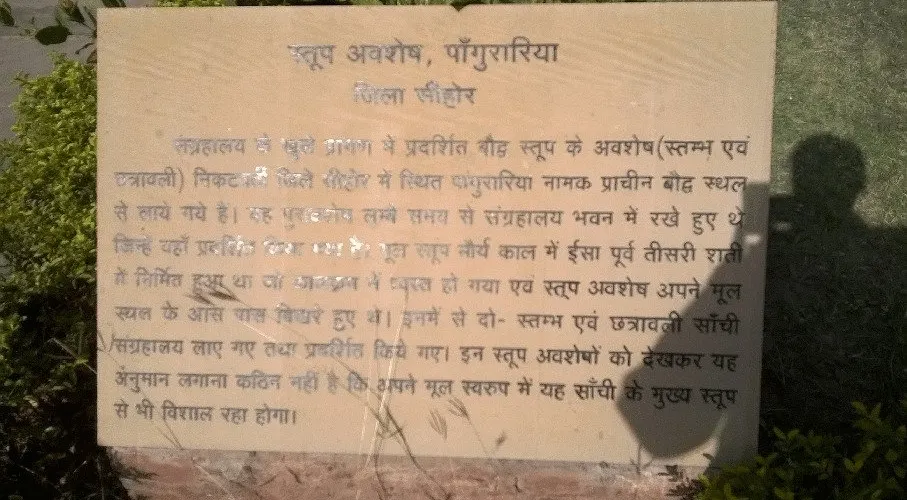 स्तूप अवशेष, पाँगुरारिया
जिला सीहोर
संग्रहालय के खुले प्रांगण में प्रदर्शित बौद्व स्तूप के अवशेष(स्तम्भ एवं
छत्रावली) निकटवर्ती जिले सीहोर में स्थित पांगुरारिया नामक प्राचीन बौद्व स्थल
से लाये गये है। यह पुरावशेष लम्बे समय से संग्रहालय भवन में रखे हुए थे
जिन्हें यहाँ प्रदर्शित किया गया है। मूल स्तूप मौर्य काल में ईसा पूर्व तीसरी शती
में निर्मित हुआ था जो कालान्तर में ध्वस्त हो गया एवं स्तूप अवशेष अपने मूल
स्थल के आस पास बिखरे हुए थे। इनमें से दो- स्तम्भ एवं छत्रावली साँची
संग्रहालय लाए गए तथा प्रदर्शित किये गए। इन स्तूप अवशेषों को देखकर यह
अनुमान लगाना कठिन नहीं है कि अपने मूल स्वरुप में यह साँची के मुख्य स्तूप
से भी विशाल रहा होगा।